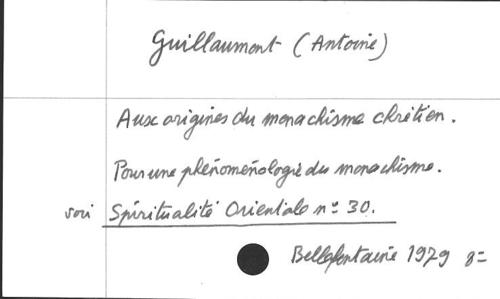 Guillaumont (Antoine)
Aux origines du monachisme chrétien.
Pour une phénoménologie du monachisme.
voir Spiritualité Orientale n° 30.
Bellefontaine 1979 8=